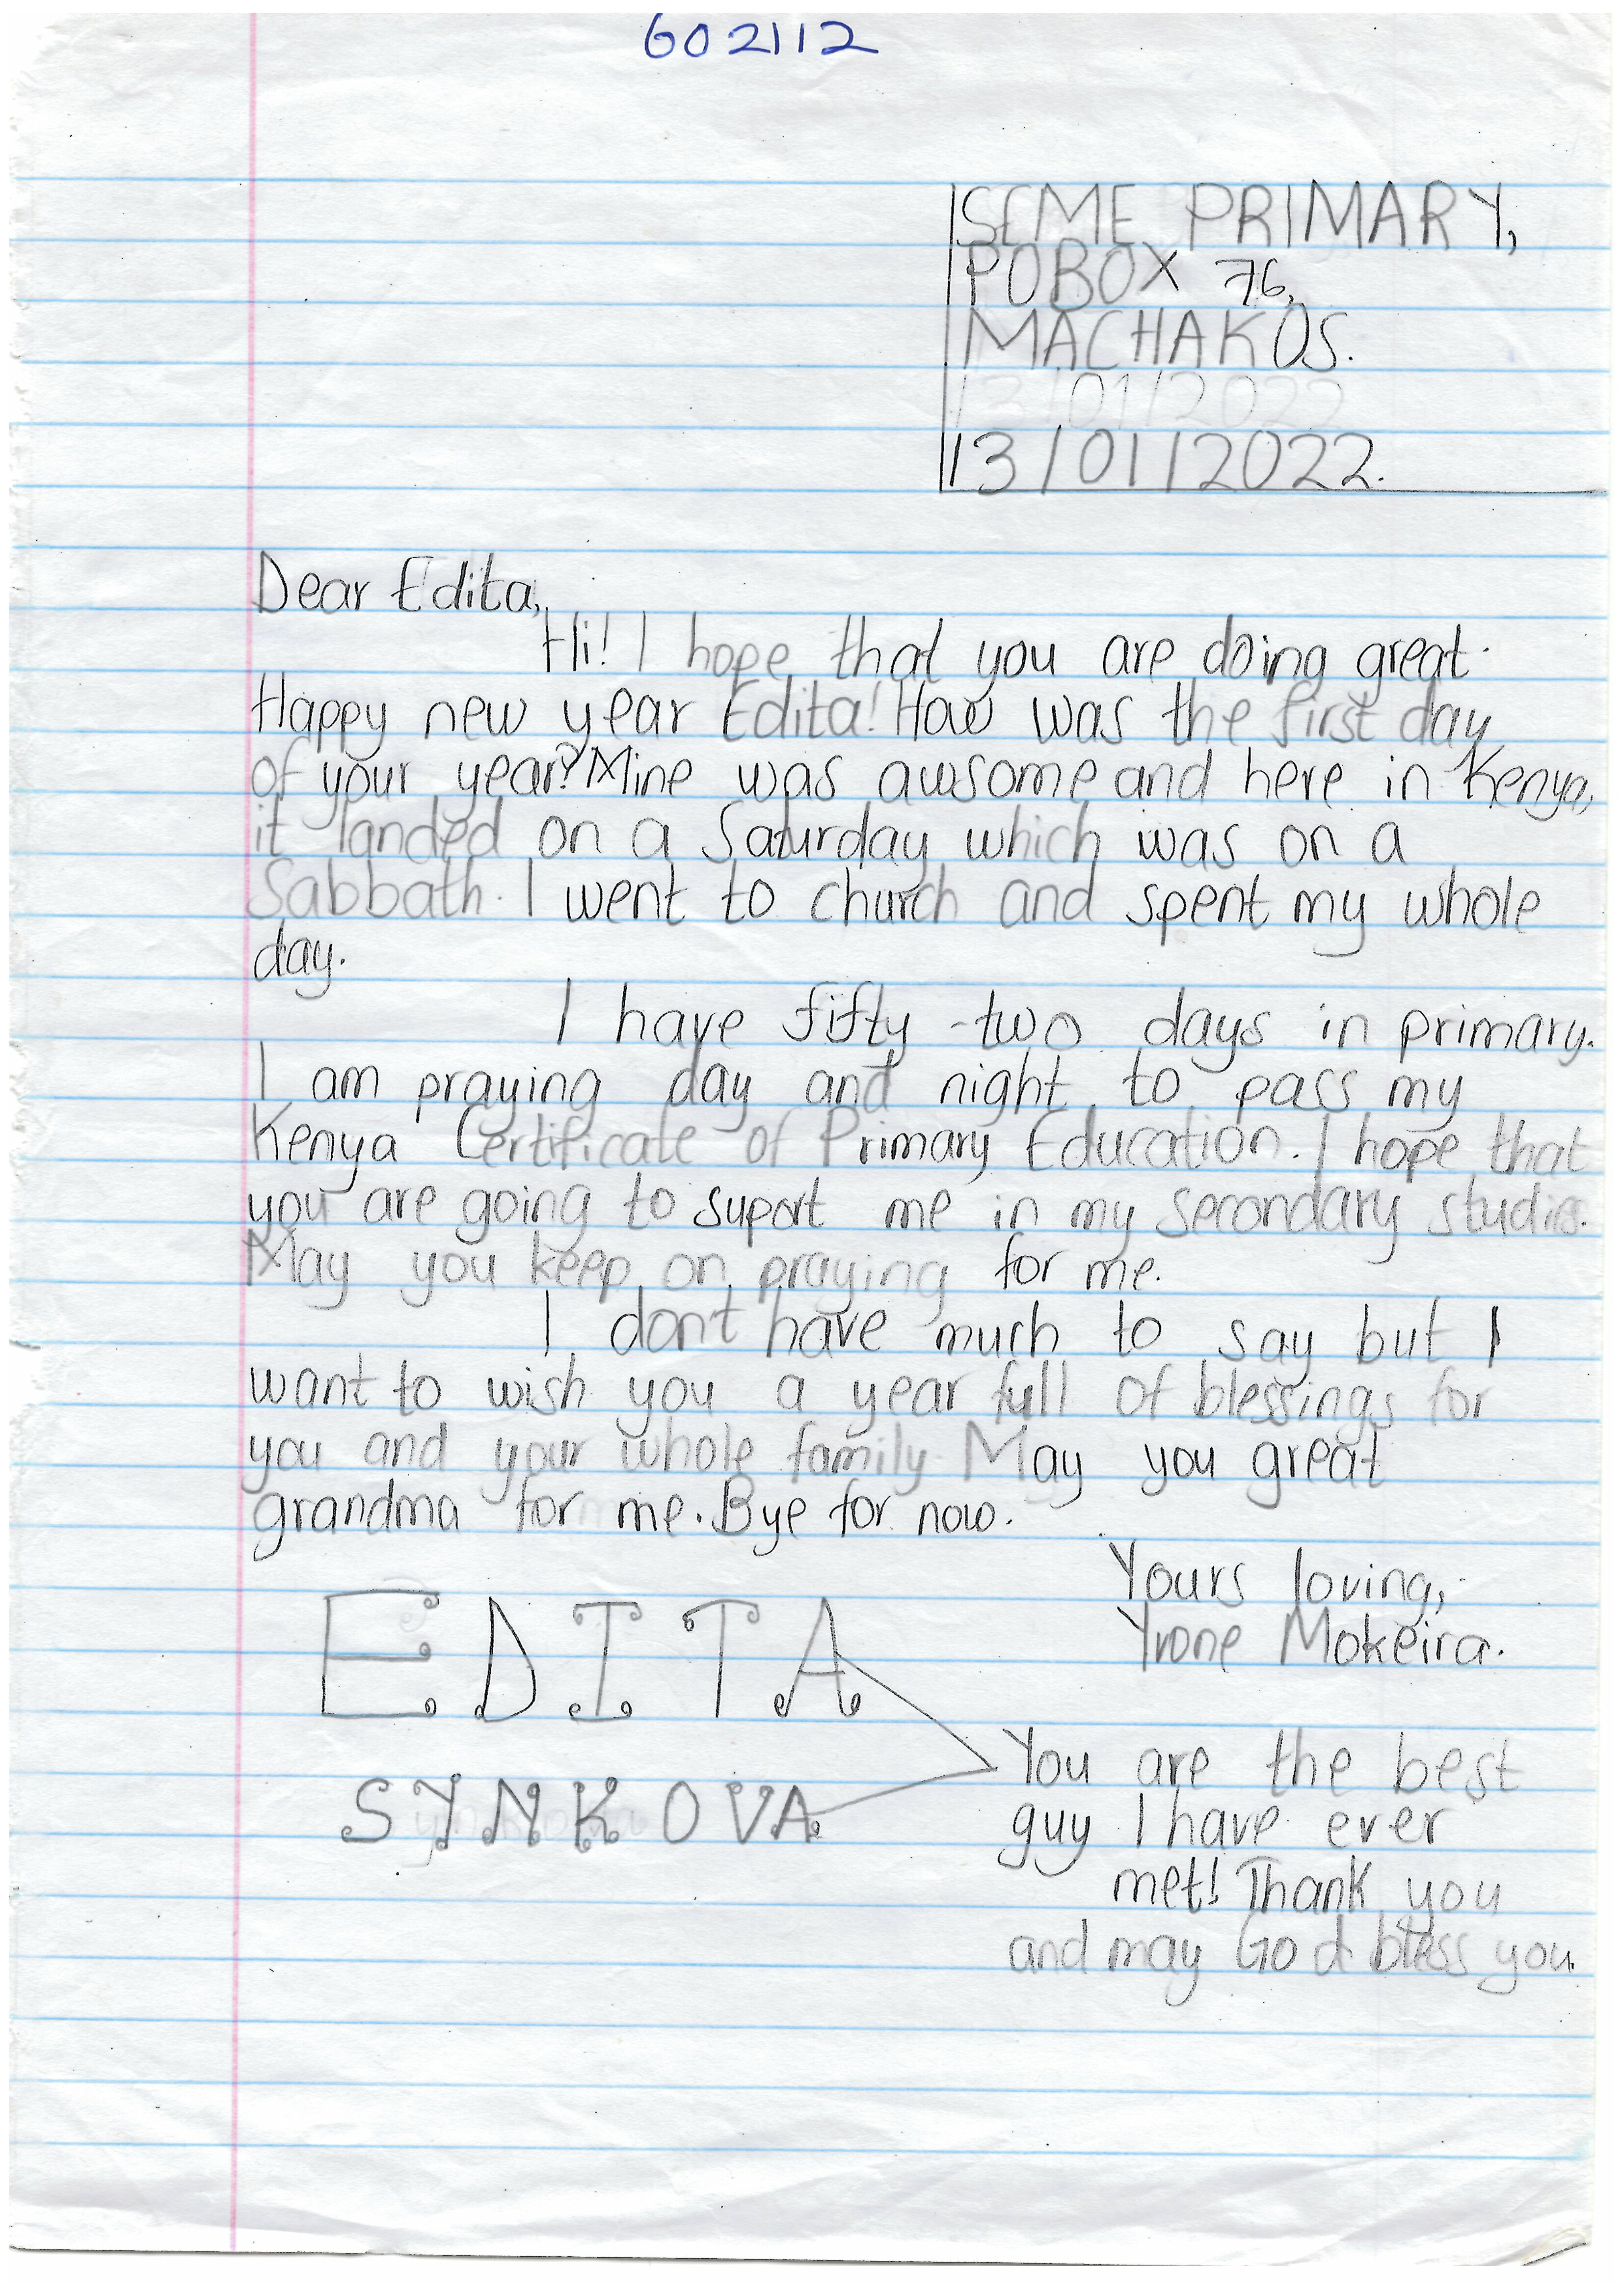 602112
SCME PRIMARY,
POBOX 76,
MACHAKOS.
13/01/2022
13/01/2022.
Dear Edita,
Hi! I hope that you are doing great.
Happy new year Edita! How was the first day
of your year? Mine was awsome and here in Kenya,
it landed on a Saturday which was on a
Sabbath. I went to church and spent my whole
day.
I have fifty-two days in primary.
I am praying day and night to pass my
Kenya Certificate of Primary Education. I hope that
you are going to suport me in my secondary studies.
May you keep on praying for me.
I don't have much to say but I
want to wish you a year full of blessings for
you and your whole family. May you great
grandma for me. Bye for now.
Yours loving,
Yvone Mokeira.
EDITA
SYNKOVA
You are the best
guy I have ever
met! Thank you
and may God bless you.